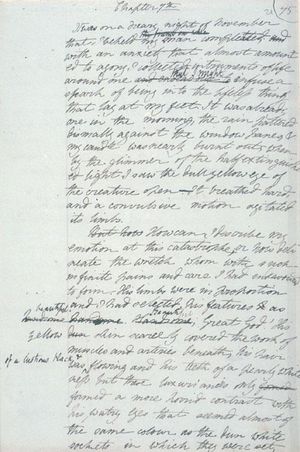 Chapter 7th
75
It was on a dreary night of November
that I beheld my man completed and
with an anxiety that almost amount
ed to agony, I collected instruments of life
around me that I might infuse a
spark of being into the lifeless thing
that lay at my feet. It was already
one in the morning, the rain pattered
dismally against the window panes &
my candle was nearly burnt out when
by the glimmer of the half extinguish
ed light I saw the dull yellow eye of
the creature open. It breathed hard
and a convulsive motion agitated
its limbs.
But how How can I describe my
emotion at this catastrophe, or how deli
neate the wretch whom with such
infinite pains and care I had endeavoured
to form. His limbs were in proportion
and I had selected his features as
beautiful
handsome Handsome Beautiful Great God! His
yellow
skin scarcely covered the work of
muscles and arteries beneath; his hair
of a lustrous black &
was flowing and his teeth of a pearly white
ness but these luxuriances only
formed a more horrid contrast with
his watry eyes that seemed almost of
the same colour as the dun white
sockets in which they were set,